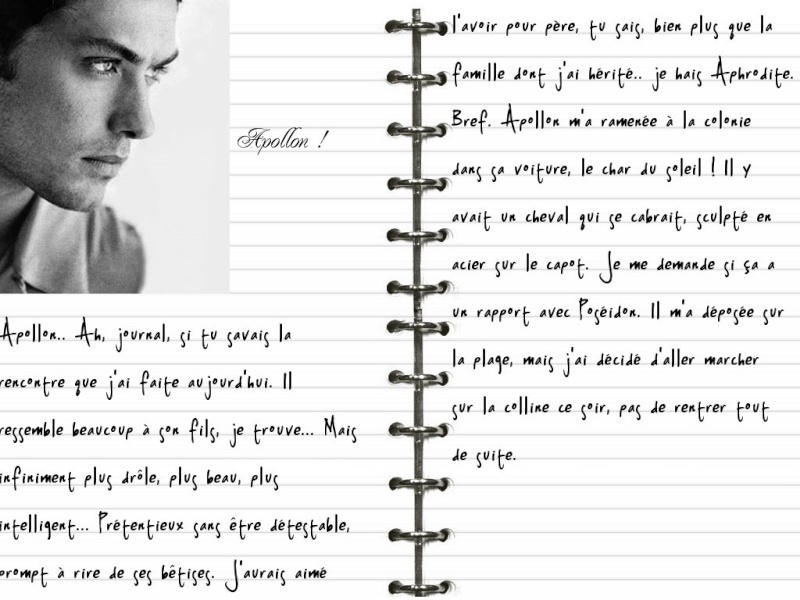 Apollon !
Apollon.. Ah, journal, si tu savais la
rencontre que j'ai faite aujourd'hui. Il
ressemble beaucoup à son fils, je trouve... Mais
infiniment plus drôle, plus beau, plus
intelligent... Prétentieux sans être détestable,
prompt à rire de ses bêtises. J'aurais aimé
l'avoir pour père, tu sais, bien plus que la
famille dont j'ai hérité.. je hais Aphrodite.
Bref. Apollon m'a ramenée à la colonie
dans sa voiture, le char du soleil ! Il y
avait un cheval qui se cabrait, sculpté en
acier sur le capot. Je me demande si ça a
un rapport avec Poséidon. Il m'a déposée sur
la plage, mais j'ai décidé d'aller marcher
sur la colline ce soir, pas de rentrer tout
de suite.